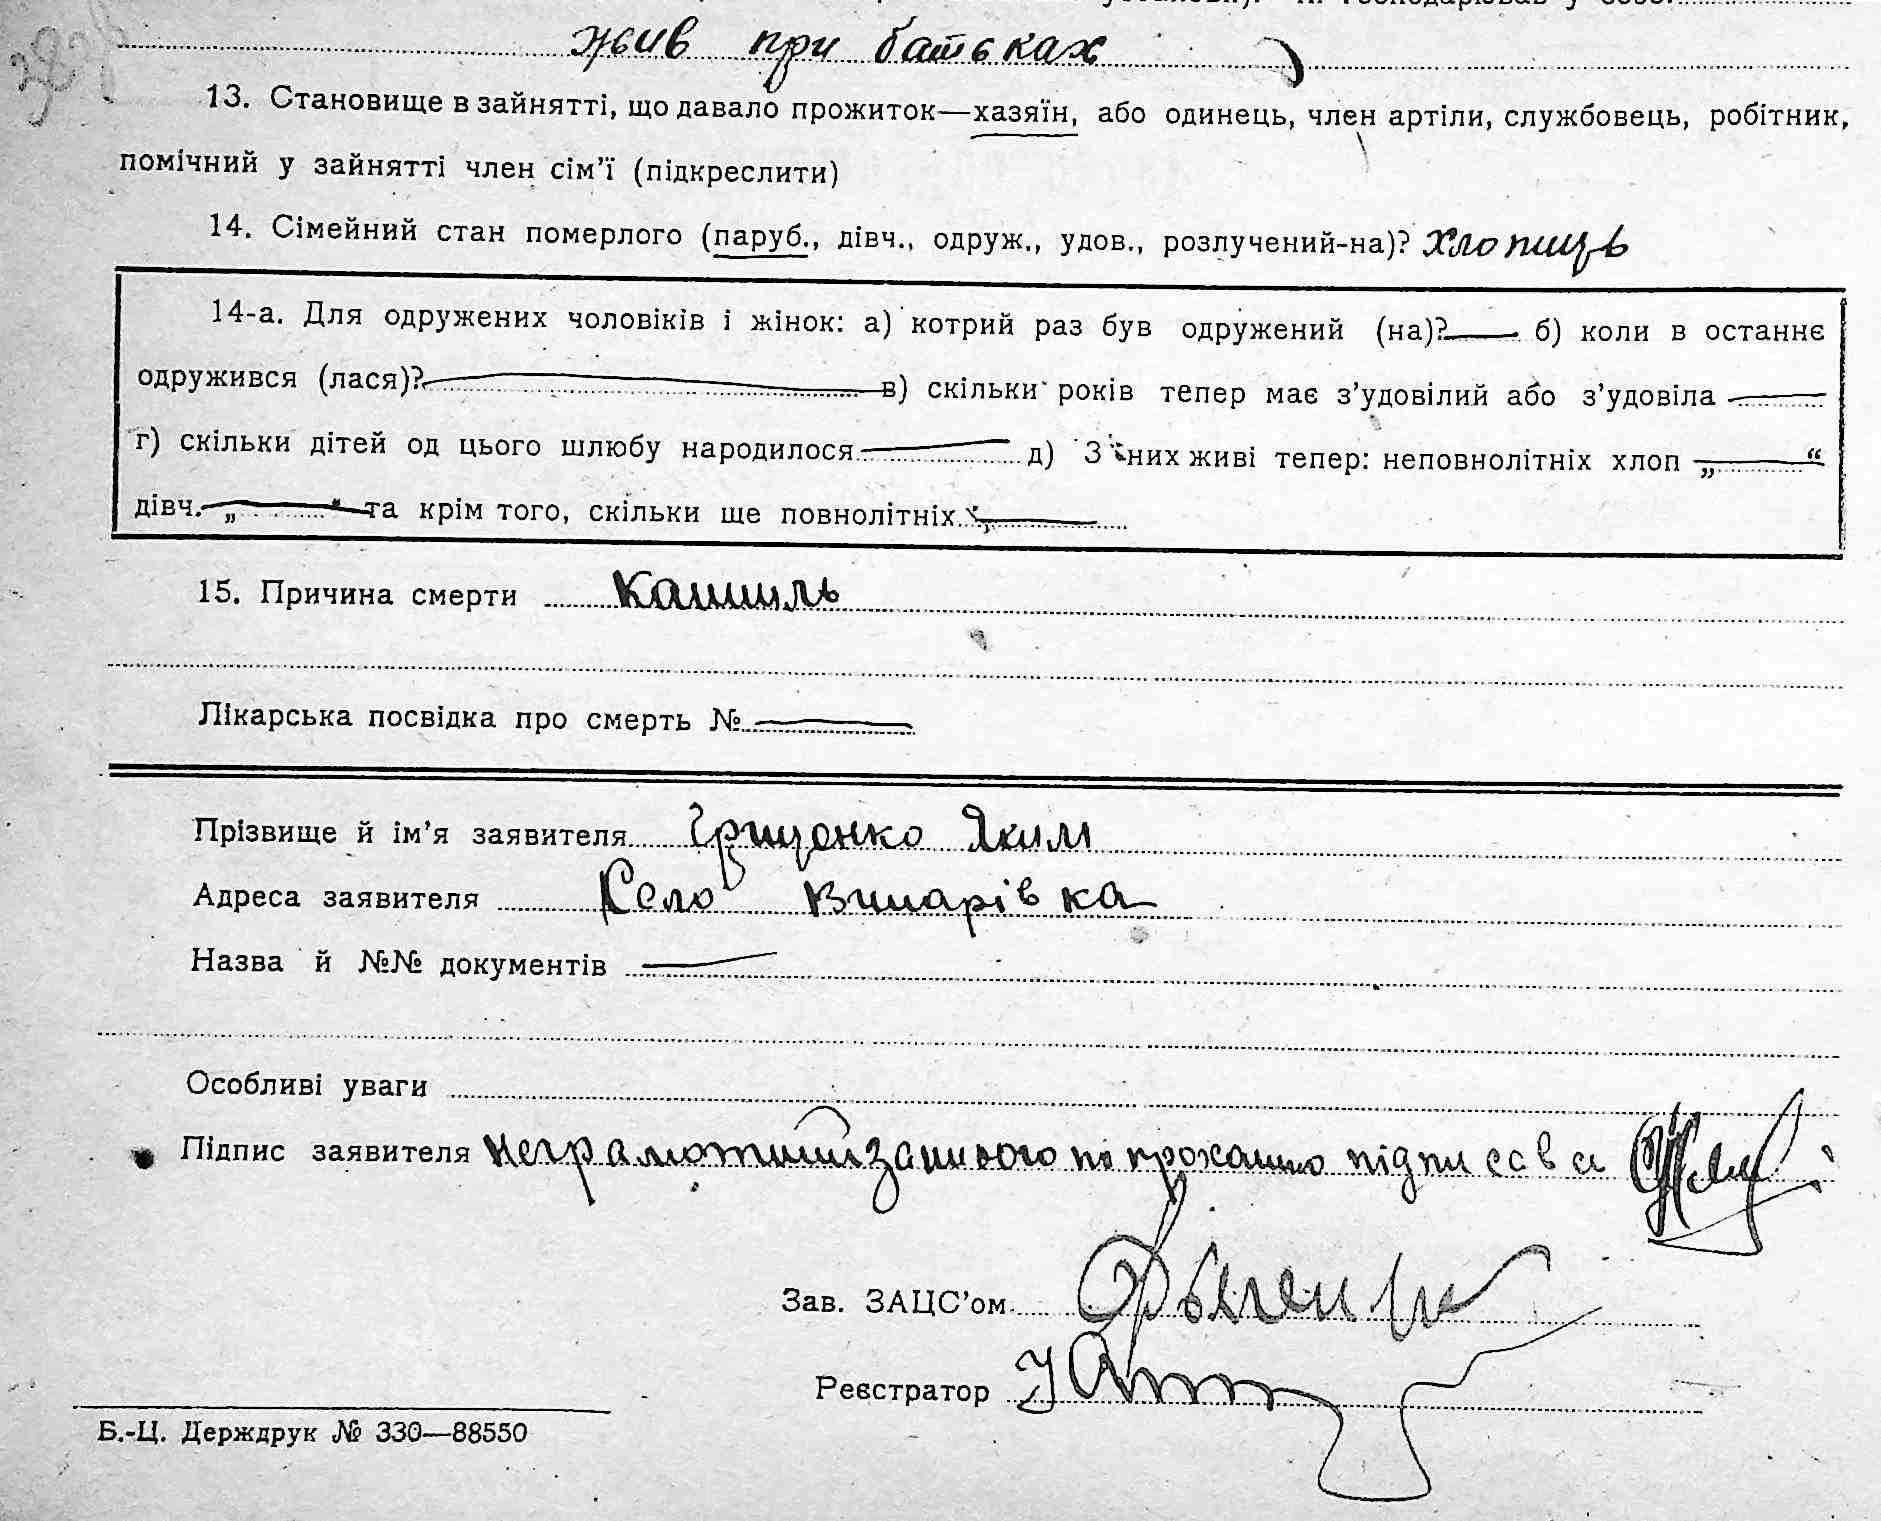 жив при батьках
13. Становище в зайнятті, що давало прожиток—хазяїн, або одинець, член артіли, службовець, робітник,
помічний у зайнятті член сім’ї (підкреслити)
14. Сімейний стан померлого (паруб., дівч., одруж., удов., розлучений-на)? хлопиць
14-а. Для одружених чоловіків і жінок: а) котрий раз був одружений (на)? б) коли в останнє
одружився (лася)? в) скільки років тепер має з’удовілий або з’удовіла
г) скільки дітей од цього шлюбу народилося д) З них живі тепер: неповнолітніх хлоп „ “
дівч. „ “ та крім того, скільки ще повнолітніх „
15. Причина смерти Кашиль
Лікарська посвідка про смерть №
Прізвище й ім’я заявителя Грищенко Яким
Адреса заявителя Село Винарівка
Назва й №№ документів
Особливі уваги
Підпис заявителя неграмотний за нього по проханню підписався
Зав. ЗАЦС’ом
Реєстратор
Б.-Ц. Держдрук № 330—88550